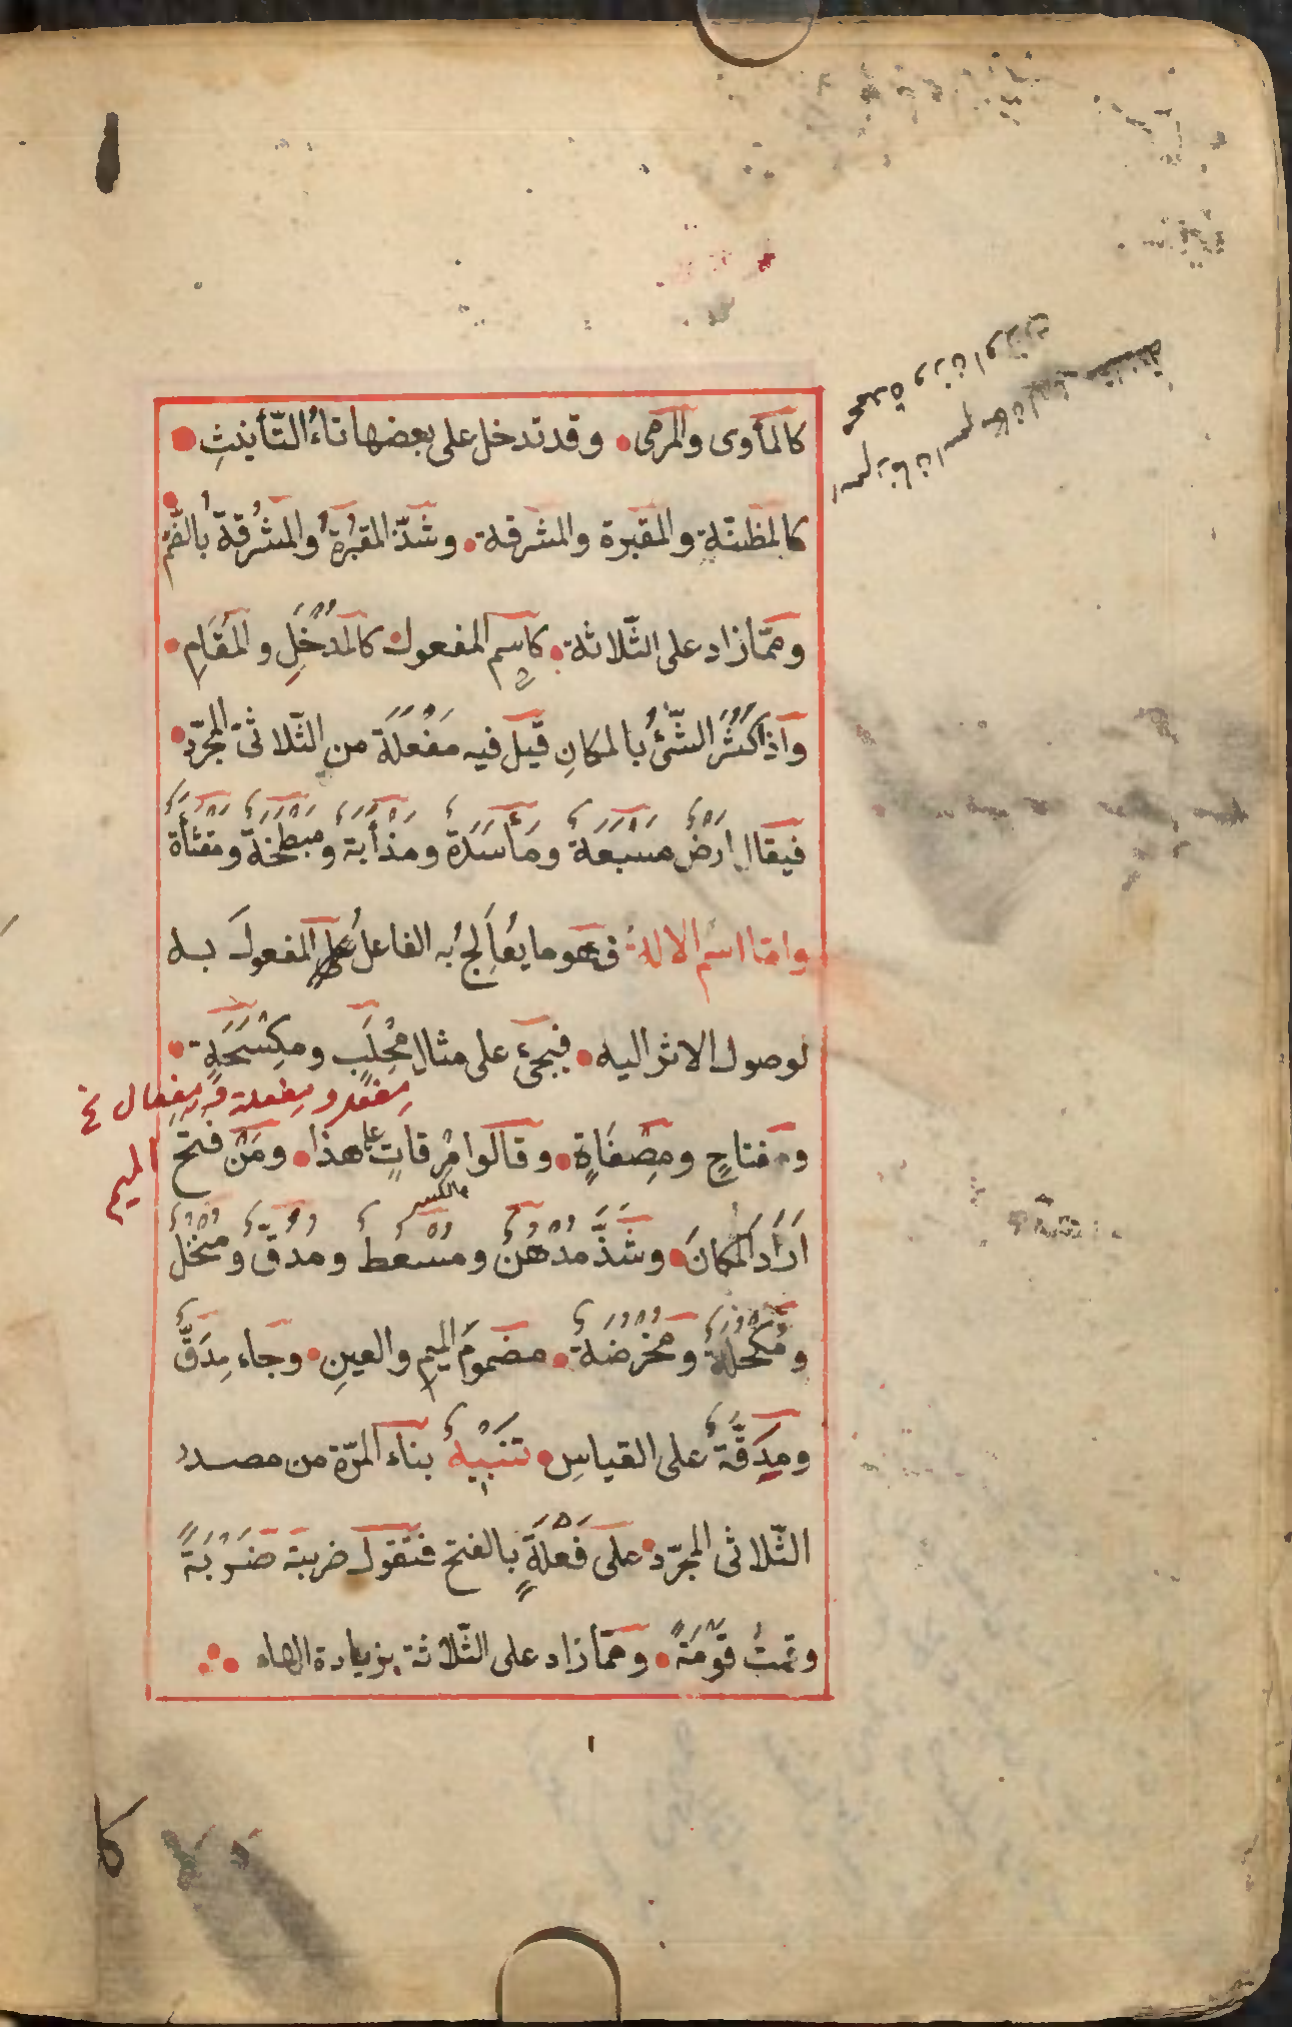 كالمأوى والمرمى وقد تدخل على بعضها تاءُ التّأنيثِ
كالمظنّة والمقبرة والمشرقة وشذّ المقبُرةُ والمشرُقةُ بالضّمّ
وممّا زاد على الثّلاثة كاسم المفعول كالمُدْخَلِ والمُقَامِ
واذا كَثُرَ الشّئُ بالمكانِ قيل فيه مَفْعَلَة من الثّلاثىّ المجرّد
فيقال ارضٌ مَسْبَعَةٌ ومَأْسَدَةٌ ومَذْأَبَةٌ ومَبْطَخَةٌ ومَقْثَأَةٌ
وامّا اسم الالة فهو ما يعالِجُ به الفاعلُ المفعولَ به
لوصول الاثر اليه فيجىء على مثال مِحْلَبٍ ومِكْسَحَةٍ
مِفْعَل ومِفْعَلَة ومِفْعَال
ومفتاحٍ ومِصْفَاةٍ وقالوا مِرقاةٍ على هذا ومَنْ فتح
الميم
بالكسر
اَرَادَ المكانَ وشَذَّ مُدْهُنٌ ومُسْعُطٌ ومُدُقٌّ ومُنْخُلٌ
ومُكْحُلَةٌ ومُحْرُضَةٌ مضمومَ الميمِ والعينِ وجاء مِدَقٌّ
ومِدَقَّةٌ على القياسِ تنبيهٌ بناء المرّة من مصدر
الثّلاثى المجرّد على فَعْلَةٍ بالفتح فتقول ضربت ضَرْبَةً
وقمتُ قَوْمَةً وممّا زاد على الثّلاثة بزيادة الهاء